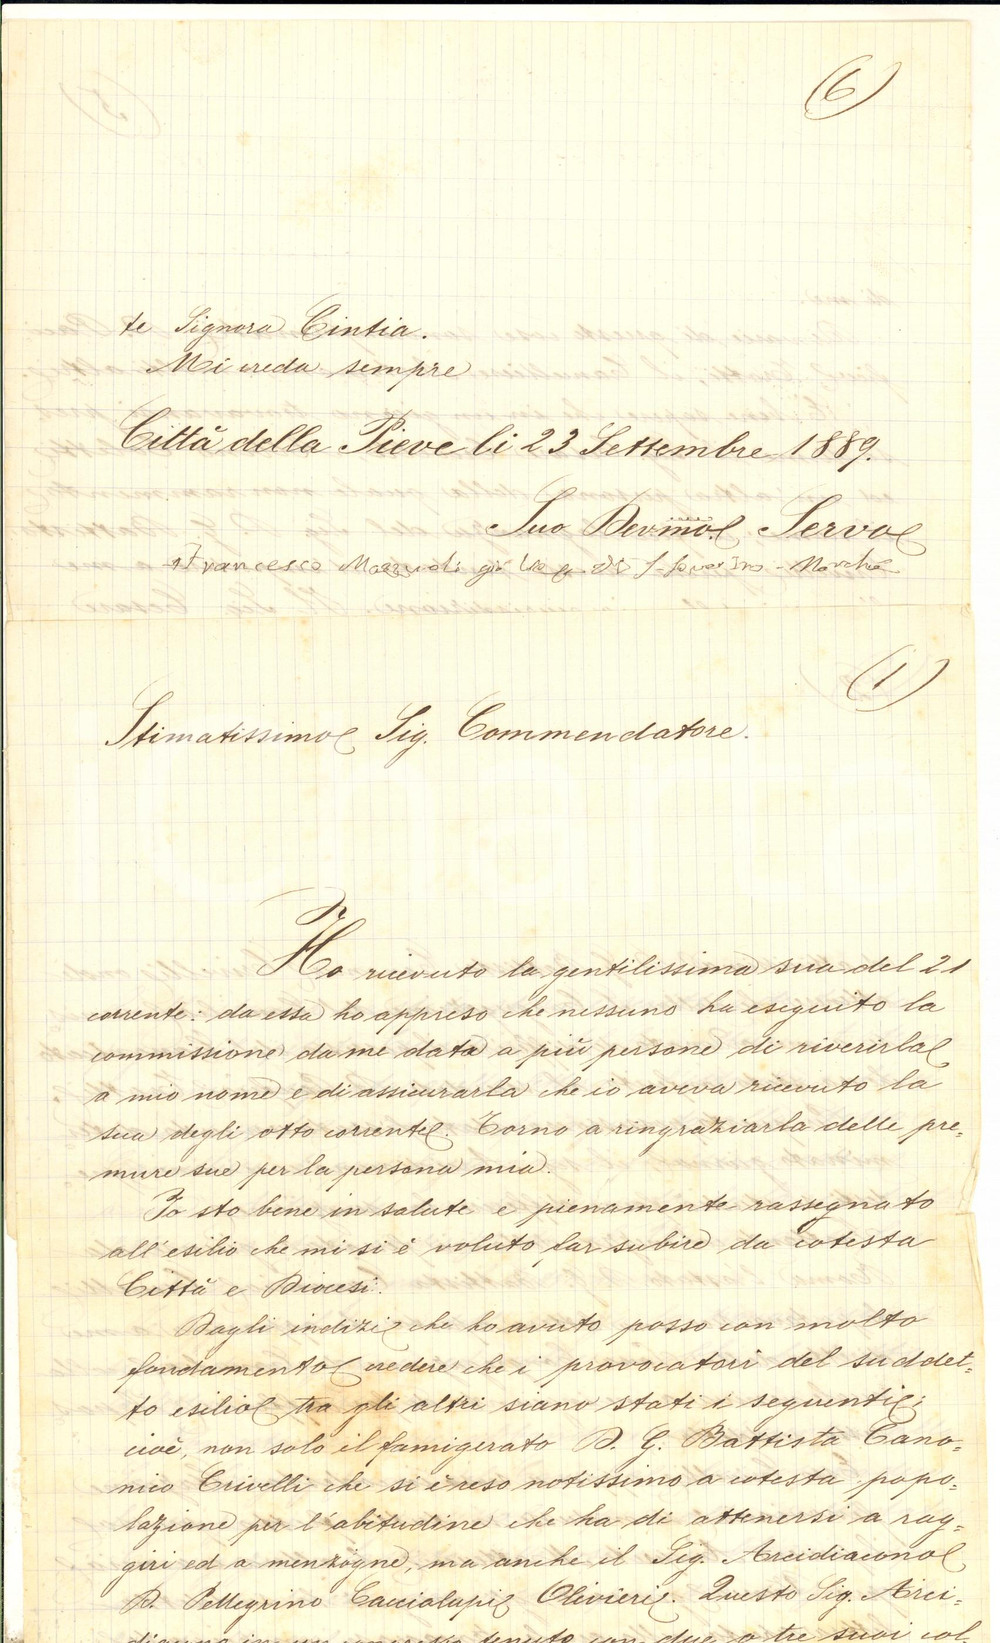 (6)
te Signora Cintia.
Mi creda sempre
Città della Pieve li 23 Settembre 1889.
Suo Devmo. Servo
Francesco Mazzuoli già di S. Severino - Marche
(1)
Stimatissimo Sig. Commendatore.
Ho ricevuto la gentilissima sua del 21
corrente: da essa ho appreso che nessuno ha eseguito la
commissione da me data a più persone di riverirla
a mio nome e di assicurarla che io aveva ricevuto la
sua degli otto corrente. Torno a ringraziarla delle pre=
mure sue per la persona mia.
Io sto bene in salute e pienamente rassegnato
all'esilio che mi si è voluto far subire da cotesta
Città e Diocesi.
Dagli indizi che ho avuto posso con molto
fondamento credere che i provocatori del suddet=
to esilio tra gli altri siano stati i seguenti;
cioè, non solo il famigerato D. G. Battista Cano=
nico Crivelli che si è reso notissimo a cotesta popo=
lazione per l'abitudine che ha di attenersi a rag=
giri ed a menzogne, ma anche il Sig. Arcidiacono
D. Pellegrino Caccialupi Olivieri. Questo Sig. Arci=
diacono in un congresso tenuto con due o tre suoi col=